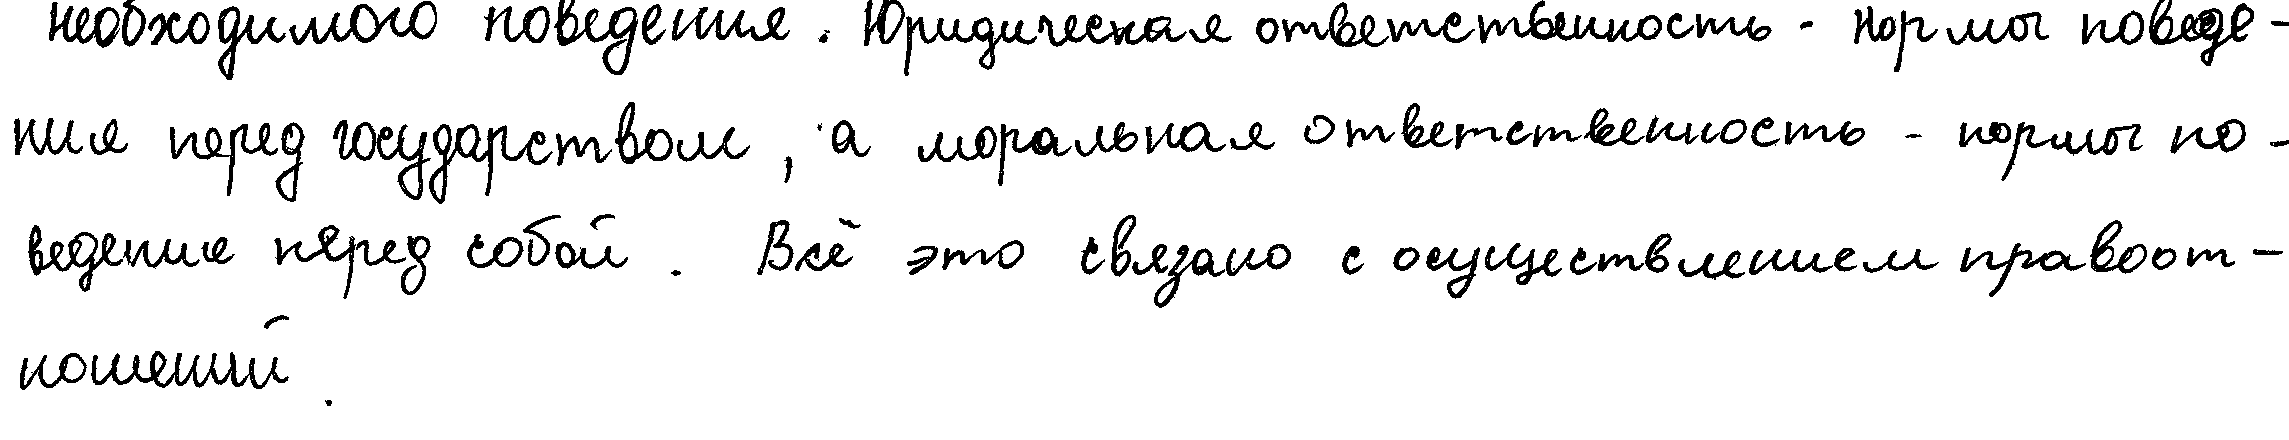 необходимого поведения. Юридическая ответственность - нормы поведе-
ния перед государством, а моральная ответственность - нормы по-
ведения перед собой. Всё это связано с осуществлением правоот-
ношений.